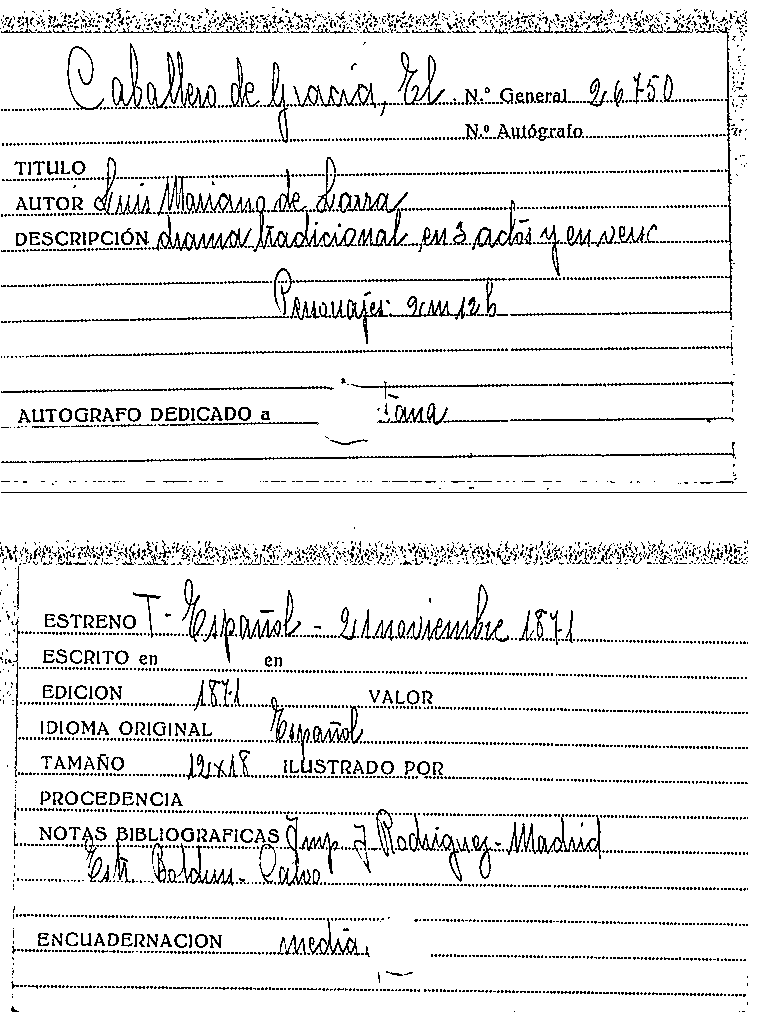 Caballero de Gracia, El N.º General 26750
N.º Autógrafo
TITULO
AUTOR Luis Mariano de Larra
DESCRIPCIÓN drama tradicional, en 3 actos y en verso
Personajes: 2m 12 h
AUTOGRAFO DEDICADO a
ESTRENO T. Español - 21 noviembre 1871
ESCRITO en en
EDICION 1871 VALOR
IDIOMA ORIGINAL Español
TAMAÑO 12x18 ILUSTRADO POR
PROCEDENCIA
NOTAS BIBLIOGRAFICAS Imp. J. Rodriguez - Madrid
Estr. Boldun - Calvo
ENCUADERNACION media